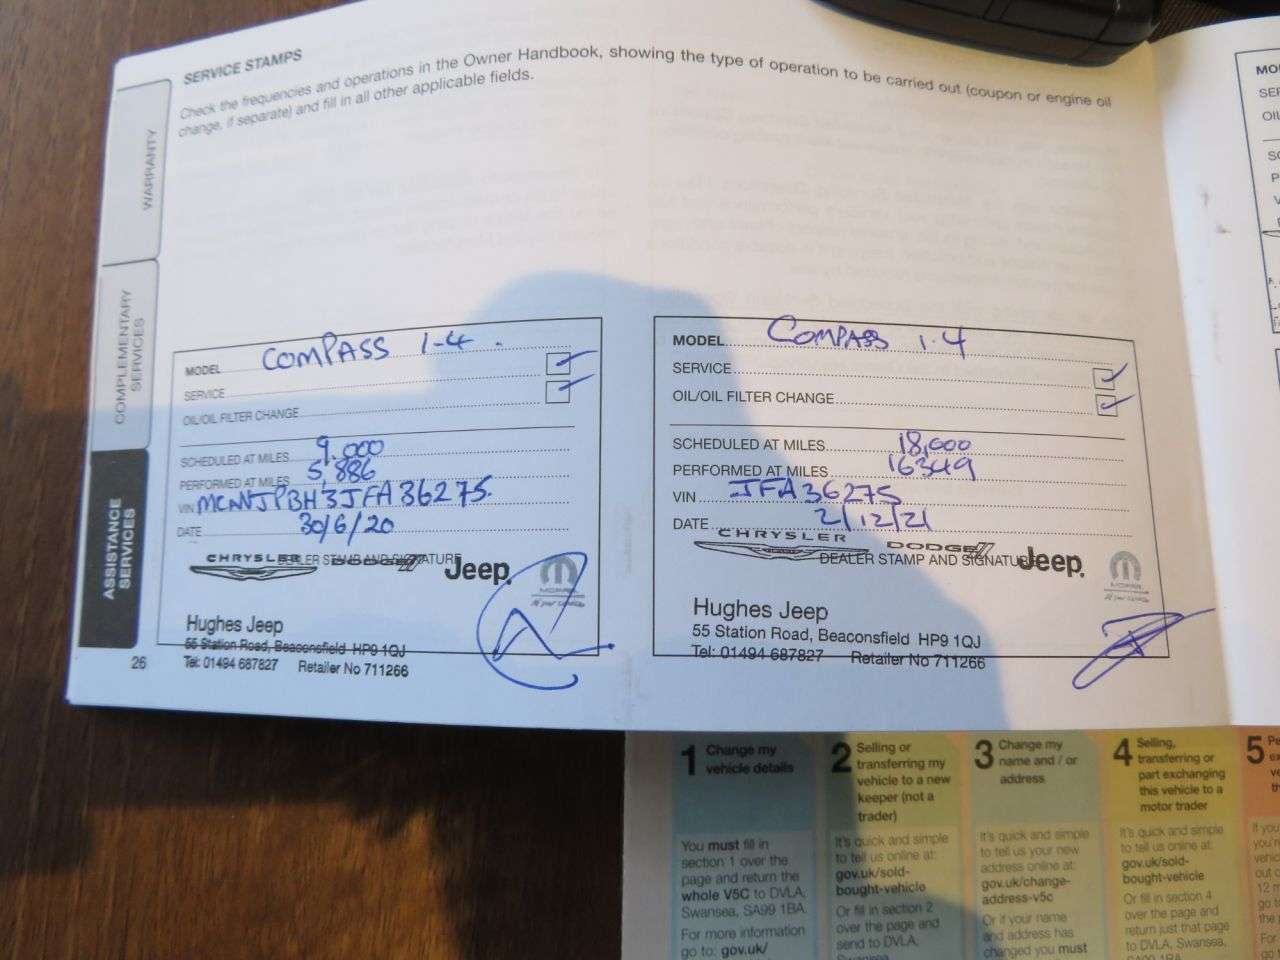 SERVICE STAMPS
Check the frequencies and operations in the Owner Handbook, showing the type of operation to be carried out (coupon or engine oil
change, if separate) and fill in all other applicable fields.
WARRANTY
COMPLEMENTARY
SERVICES
ASSISTANCE
SERVICES
MODEL COMPASS 1-4.
SERVICE
OIL/OIL FILTER CHANGE
SCHEDULED AT MILES 9,000
PERFORMED AT MILES 5,886
VIN MCANJPBH3JFA36275.
DATE 30/6/20
DEALER STAMP AND SIGNATURE
CHRYSLER DODGE Jeep
MOPAR
Hughes Jeep
55 Station Road, Beaconsfield HP9 1QJ
Tel: 01494 687827 Retailer No 711266
26
MODEL COMPASS 1.4
SERVICE
OIL/OIL FILTER CHANGE
SCHEDULED AT MILES 18,000
PERFORMED AT MILES 16349
VIN JFA36275
DATE 2/12/21
DEALER STAMP AND SIGNATURE
CHRYSLER DODGE Jeep
MOPAR
Hughes Jeep
55 Station Road, Beaconsfield HP9 1QJ
Tel: 01494 687827 Retailer No 711266
1 Change my
vehicle details
You must fill in
section 1 over the
page and return the
whole V5C to DVLA,
Swansea, SA99 1BA.
For more information
go to: gov.uk/
2 Selling or
transferring my
vehicle to a new
keeper (not a
trader)
It's quick and simple
to tell us online at:
gov.uk/sold-
bought-vehicle
Or fill in section 2
over the page and
send to DVLA,
Swansea
3 Change my
name and / or
address
It's quick and simple
to tell us your new
address online at:
gov.uk/change-
address-v5c
Or if your name
and address has
changed you must
4 Selling,
transferring or
part exchanging
this vehicle to a
motor trader
It's quick and simple
to tell us online at:
gov.uk/sold-
bought-vehicle
Or fill in section 4
over the page and
return just that page
to DVLA, Swansea,
SA99 1BA
5